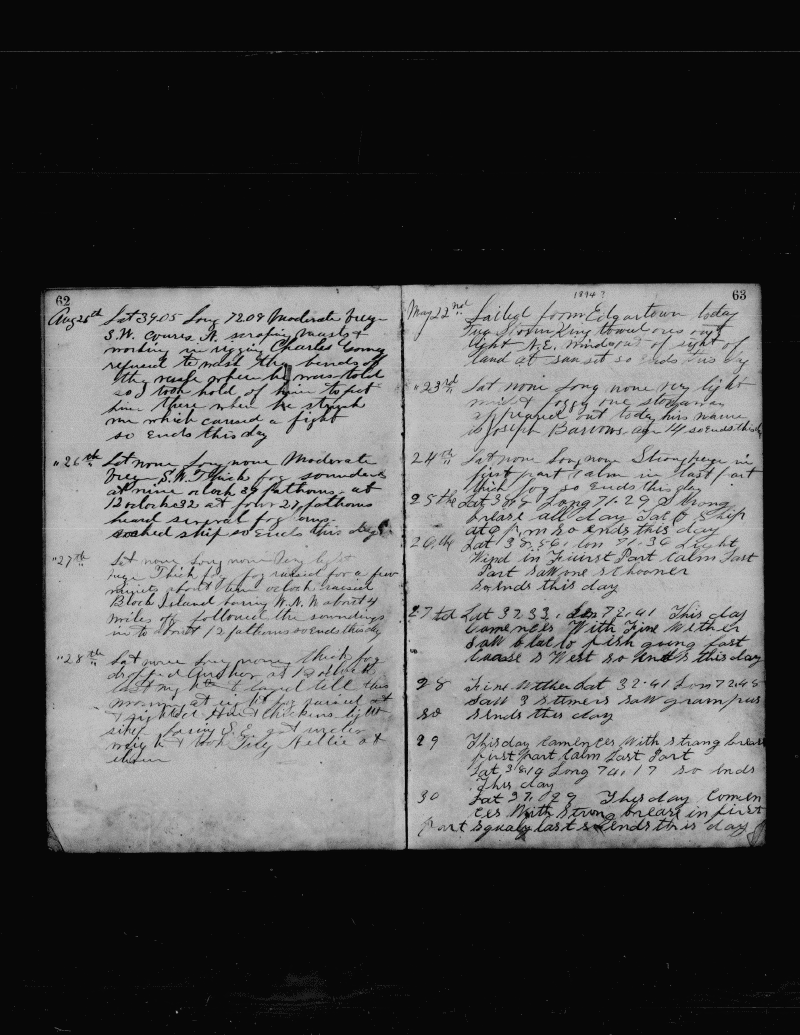 62
Aug 25th Lat 39.05 Long 72.08 Moderate breze
S.W. Coures N. scraping masts &
working in rigging Charles Gomes
refused to wash the bends of
the ship when he was told
so I took hold of him to put
him there when he struck
me which caused a fight
so ends this day
"26th Lat none Long none Moderate
breze S.W. Thick fog sounded
at nine oclock 39 fathoms at
12 oclock 32 at four 21 fathoms
heard several fog
ship so ends this day
"27th Lat none Long none Very light
breze Thick fog fog raised for a few
minits about ten oclock raised
Block Island baring W.N.W about 4
miles of followed the soundings
in to about 12 fathoms so ends this day
"28th Lat none Long none thick fog
dropped anchor at
last night & layed till this
morning at eight fog raised
& sighted Hens & Chickens light
ship baring got under
weigh & took Tug Nellie at
eleven
63
1894?
May 22nd Sailed from Edgartown today
Tug towed ores out
light N.E. Winds out of sight of
land at sunset so ends this day
"23rd Lat none Long none very light
wind & foggy one stowaway
appeared out today his name
is Joseph Barrows age 14 so ends this day
24th Lat none Long none Strong breze in
first part calm in last part
thick fog so ends this day
25the Lat 38 Long 71.29 Strong
brease all day Ship
at 6 P.m so ends this day
26th Lat 38.56, lon 71.36 Light
Wind in Fiurst Part Calm Last
Part saw one schooner
so ends this day
27 Lat 3233. Lon 72.41 This day
Comences With Fine Wether
saw blac fish going fast
Coarse s West so ends this day
28 Fine Wether Lat 32.41 Lon 72.48
saw 3 stmers saw grampus
so ends this day
29 This day Comences With strang brease
first Part Calm Last Part
Lat Long 74.17 so ends
This day
30 Lat 37.29 This day Comen
ces With Strong brease in first
part squaly last so ends this day